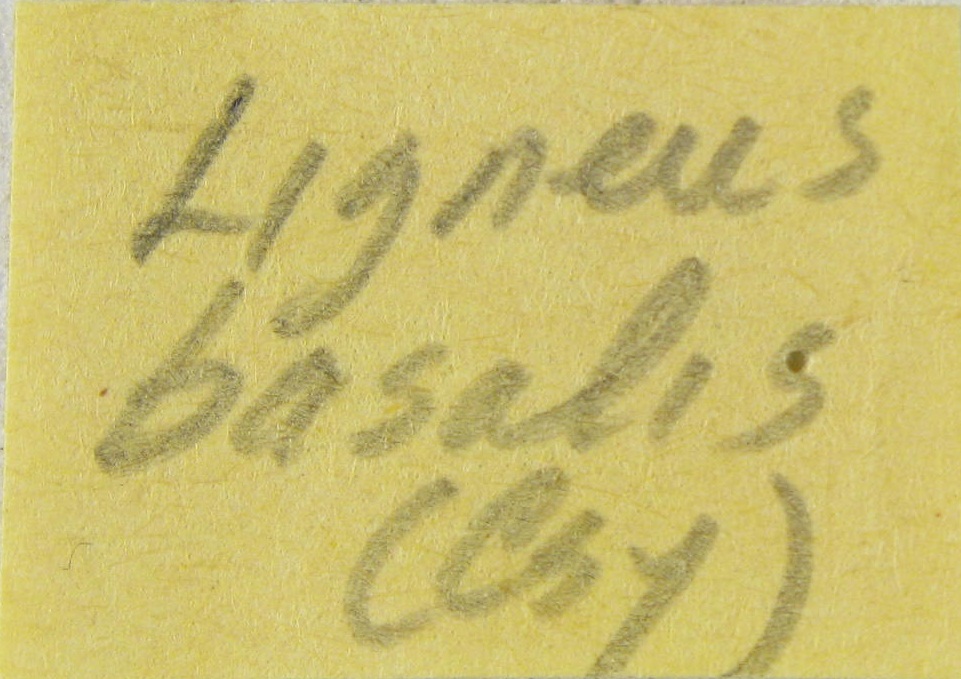 Ligneus
basalis
(Csy)